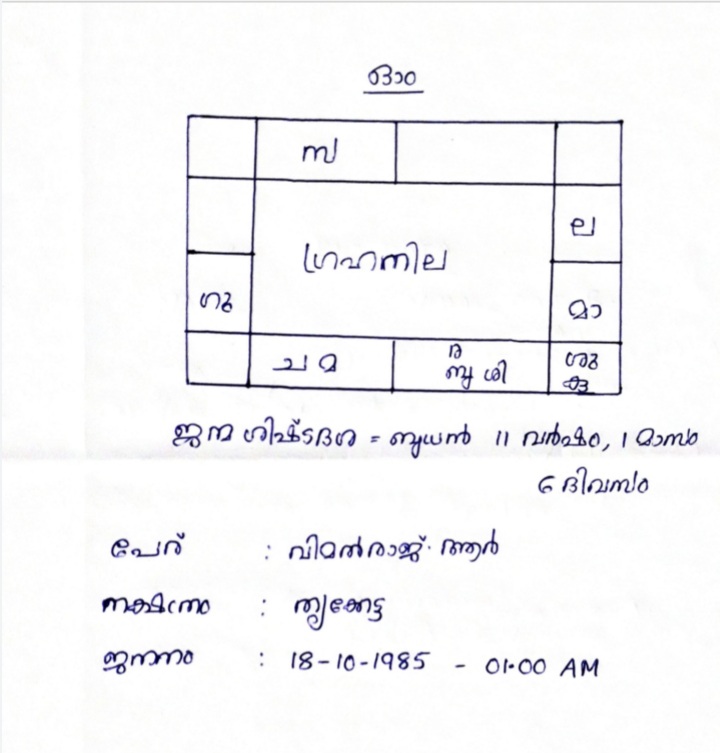 ഓം
സ
ല
ഗ്രഹനില
ഗു
മാ
ച മ
ര
ബു ശി
ശു
കു
ജന്മ ശിഷ്ടദശ = ബുധൻ 11 വർഷം, 1 മാസം
6 ദിവസം
പേര് : വിമൽരാജ്. ആർ
നക്ഷത്രം : തൃക്കേട്ട
ജനനം : 18-10-1985 - 01.00 AM